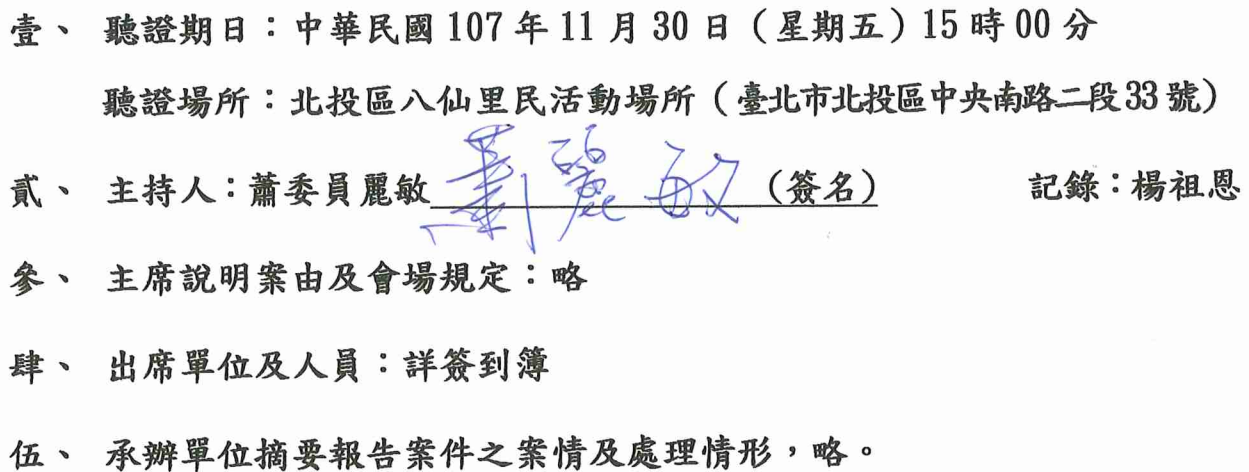 壹、 聽證期日：中華民國 107 年 11 月 30 日（星期五）15 時 00 分
聽證場所：北投區八仙里民活動場所（臺北市北投區中央南路二段 33 號）
貳、 主持人：蕭委員麗敏 蕭麗敏 （簽名） 記錄：楊祖恩
參、 主席說明案由及會場規定：略
肆、 出席單位及人員：詳簽到簿
伍、 承辦單位摘要報告案件之案情及處理情形，略。